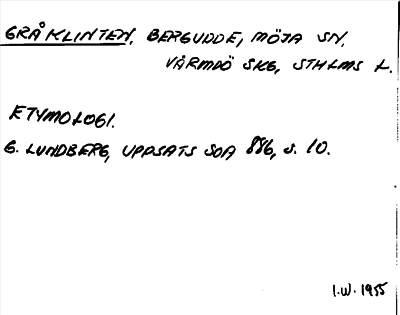 GRÅKLINTEN, BERGUDDE, MÖJA SN,
VÄRMDÖ SKG, STHLMS L.
ETYMOLOGI.
G. LUNDBERG, UPPSATS SOA 886, S. 10.
I.W. 1955